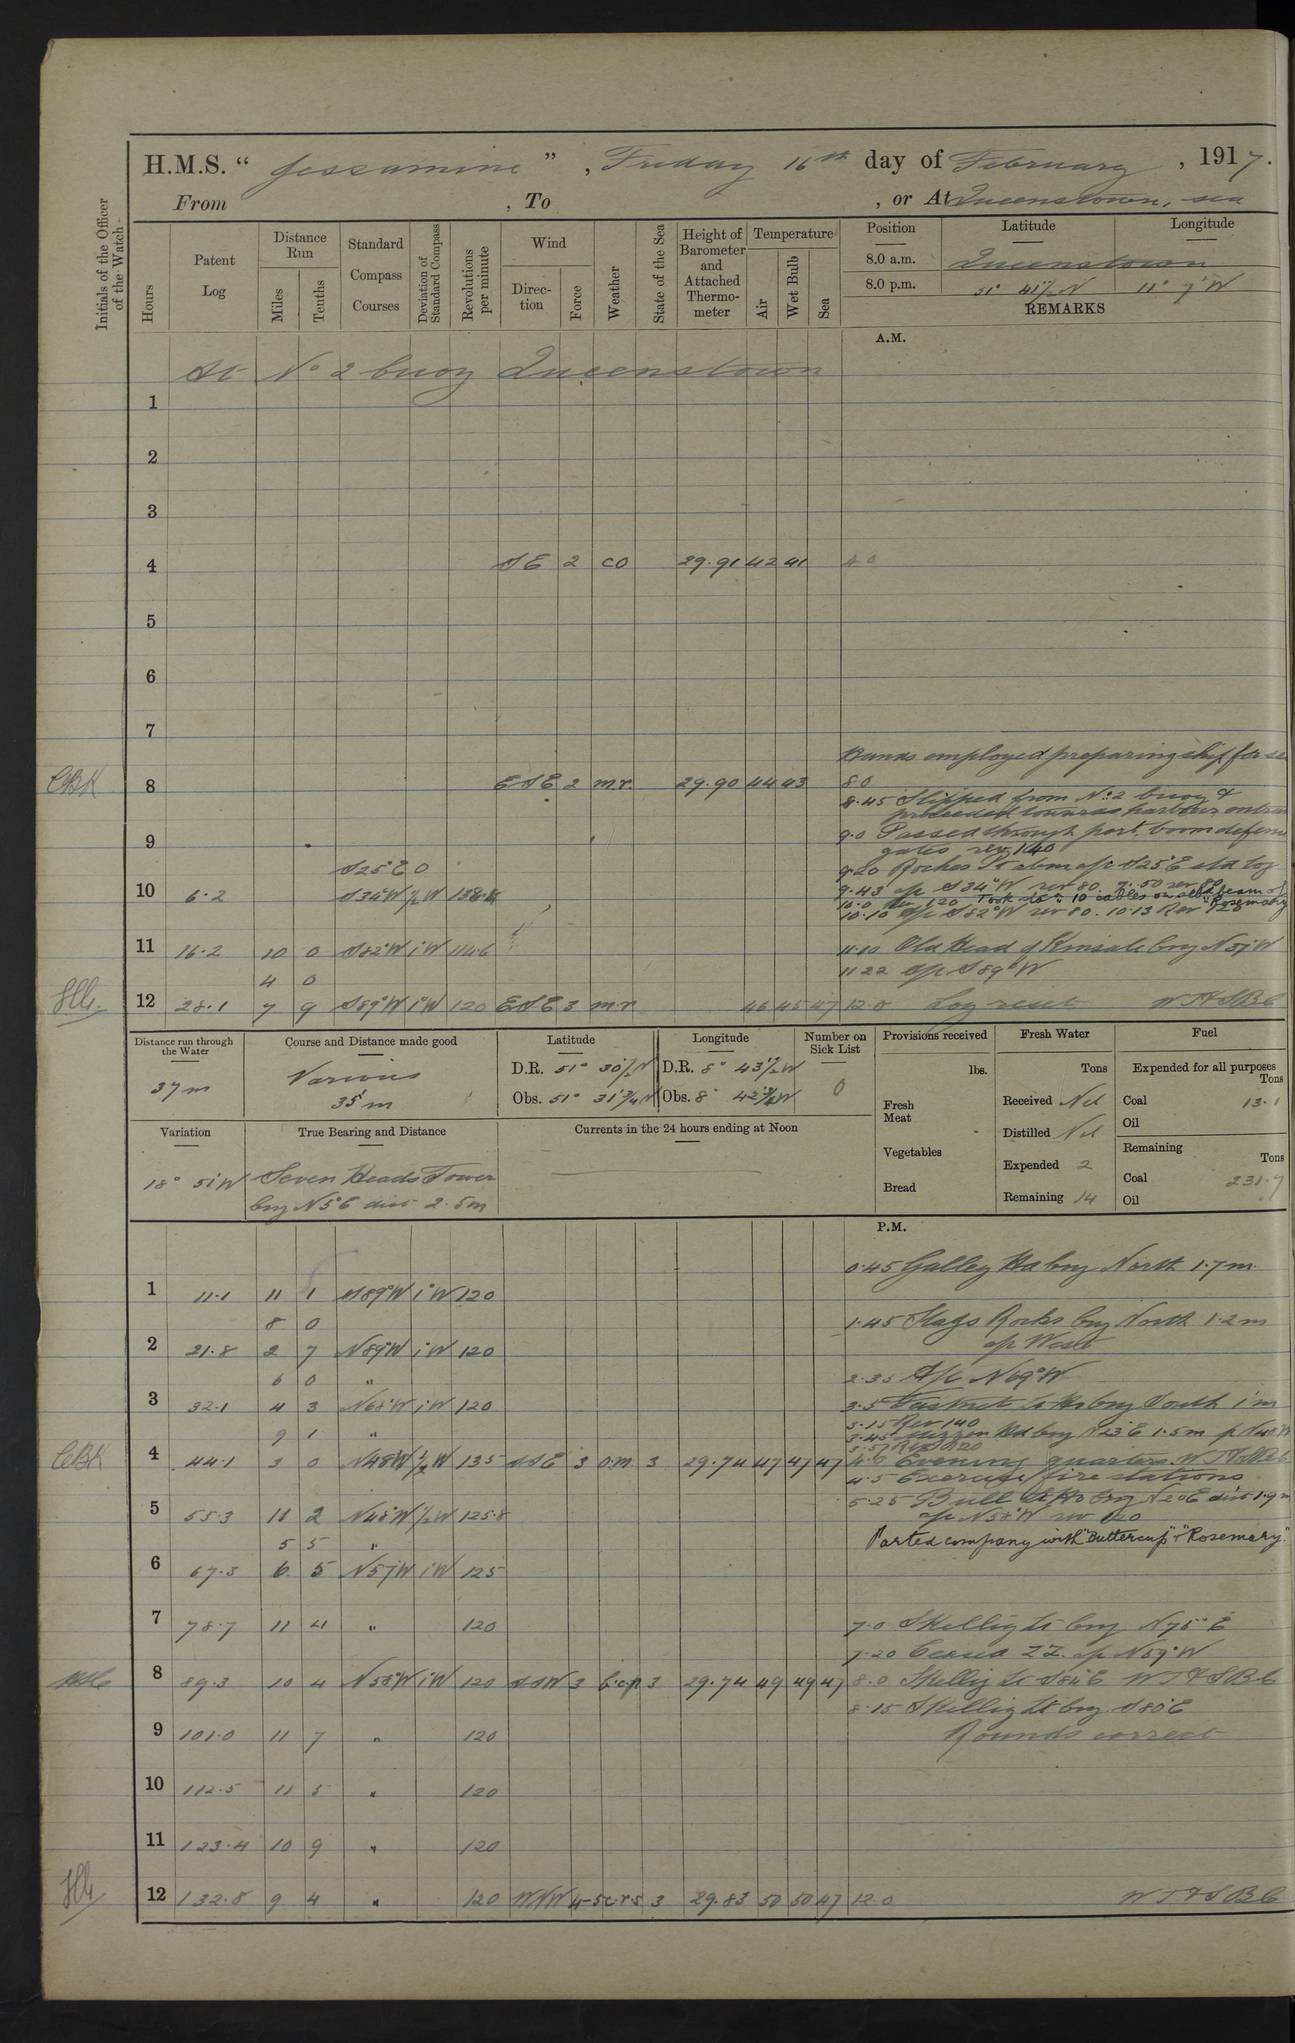 H.M.S. “ Jessamine ” , Friday 16th day of February , 1917.
From , To , or At Queenstown, sea
Initials of the Officer of the Watch
Hours
Patent Log
Distance Run
Miles
Tenths
Standard Compass Courses
Deviation of Standard Compass
Revolutions per minute
Wind
Direction
Force
Weather
State of the Sea
Height of Barometer and Attached Thermometer
Temperature
Air
Wet Bulb
Sea
Position Latitude Longitude
8.0 a.m. Queenstown
8.0 p.m. 51° 41½'N 11° 7'W
REMARKS
A.M.
At No 2 buoy Queenstown
1
2
3
4 SE 2 co 29.91 42 41 4.0
5
6
7
Hands employed preparing ship for sea
CBK 8 ESE 2 m.r. 29.90 44 43 8.0
8.45 Slipped from No. 2 buoy &
proceeded towards harbour
9 9.0 Passed through port. boom
gates rev 140
S25°E 0 9.20 Roches Pt abm a/c S25°E
10 6.2 S34°W ½W 138.8 9.43 a/c S34°W rev 80. 9.50 rev 80
10.0 Rev 120 Took stn 10 cables on beam of "Rosemary"
10.10 a/c S82°W rev 80. 10.13 Rev 120
11 16.2 10 0 S82°W 1°W 114.6 11.10 Old Head of Kinsale brg N37W
4 0 11.22 a/c S89°W
12 28.1 7 9 S89°W 1°W 120 ESE 3 m.r. 46 45 47 12.0 Log reset W T & S B C
Distance run through the Water
37m
Course and Distance made good
Various
35m
Latitude
D.R. 51° 30½'N
Obs. 51° 31¾'N
Longitude
D.R. 8° 43½'W
Obs. 8° 42¾'W
Number on Sick List
0
Provisions received
lbs.
Fresh Meat
Vegetables
Bread
Fresh Water
Tons
Received Nil
Distilled Nil
Expended 2
Remaining 14
Fuel
Expended for all purposes
Tons
Coal 13.1
Oil
Remaining
Tons
Coal 231.7
Oil
Variation
18° 51'W
True Bearing and Distance
Seven Heads Tower
brg N5°E dist 2.5m
Currents in the 24 hours ending at Noon
P.M.
0.45 Galley Hd brg North 1.7m.
1 11.1 11 1 S89°W 1°W 120
8 0 1.45 Stags Rocks brg North 1.2m
2 21.8 2 7 N89°W 1°W 120 a/c West
6 0 " 2.35 A/c N69°W
3 32.1 4 3 N68°W 1°W 120 3.5 Fastnet Lt Ho brg South 1m
3.15 Rev 140
9 1 " 3.45 Mizzen Hd brg N23°E 1.5m
3.57 Rev 120
CBK 4 44.1 3 0 N48°W ½W 135 SSE 3 o.m. 3 29.74 47 47 47 4.0 Evening quarters. W T & S B C
4.5 Exercise fire stations
5 55.3 11 2 N48°W ½W 125.8 5.25 Bull Lt Ho brg N20E dist 1.9m
a/c N58°W rev 120
5 5 " Parted company with "Buttercup" & "Rosemary".
6 67.3 6 5 N57W 1W 125
7 78.7 11 4 " 120 7.0 Skellig Lt brg N75°E
7.20 Ceased ZZ. a/c N59°W
8 89.3 10 4 N58°W 1°W 120 SSW 3 b.c.p. 3 29.74 49 49 47 8.0 Skellig Lt S84°E W T & S B C
8.15 Skellig Lt brg. S80°E
9 101.0 11 7 " 120 Rounds correct
10 112.5 11 5 " 120
11 123.4 10 9 " 120
12 132.8 9 4 " 120 WNW 4-5 c.r.s 3 29.83 50 50 47 12.0 W T & S B C